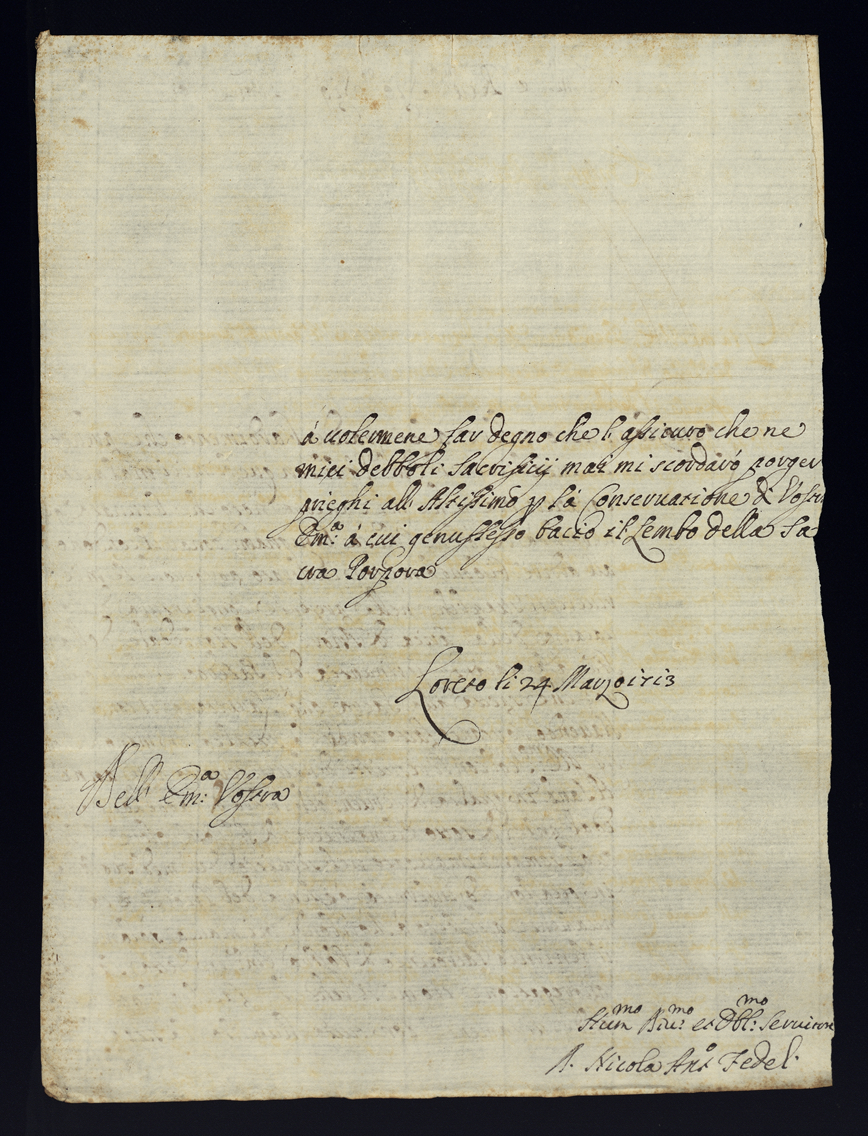 á volermene far degno che l'assicuro che ne
miei debboli sacrificij mai mi scordaró porger
prieghi all'Altissimo p la Conservatione di Vostra
Em.ª á cui genuflesso bacio il Lembo della Sa-
cra Porpora
Loreto li 24 Marzo 1713
Dell' Em.ª Vostra
Hum.mo Div.mo et Obl.mo Servitore
Nicola Ant.o Fedel